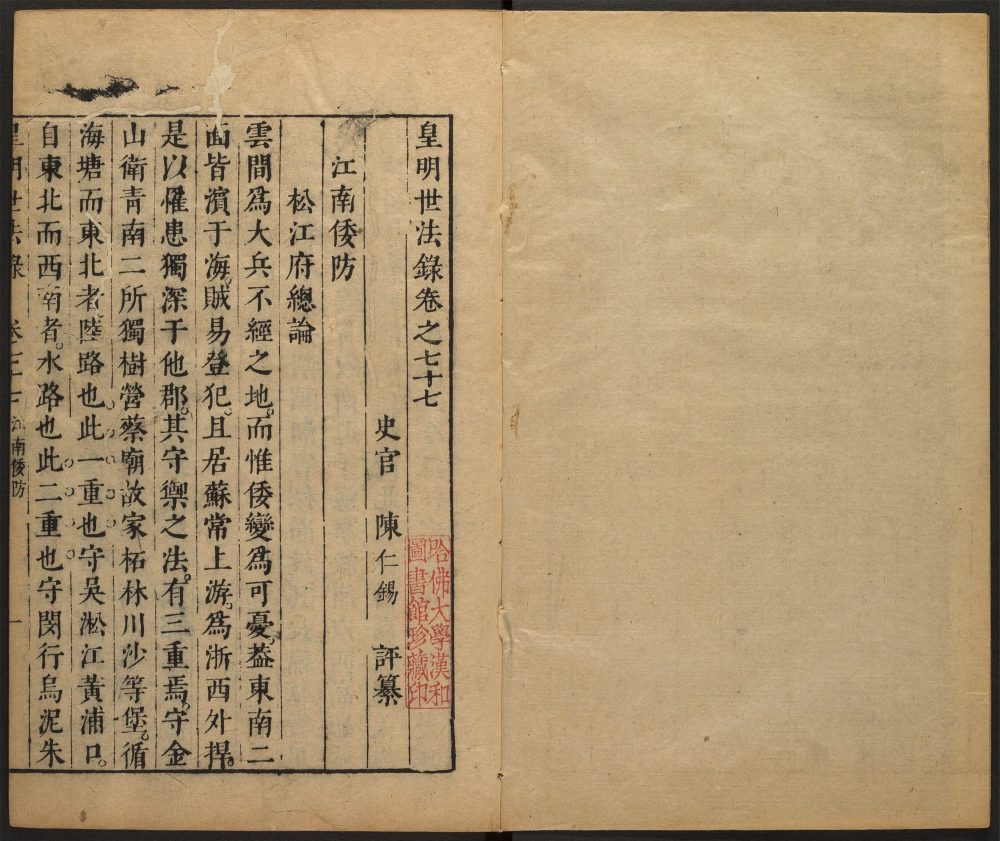 皇明世法錄卷之七十七
史官 陳仁錫 評纂
江南倭防
松江府總論
雲間爲大兵不經之地而惟倭變爲可憂葢東南二
面皆濱于海賊易登犯且居蘇常上游爲浙西外捍
是以罹患獨深于他郡其守禦之法有三重焉守金
山衛青南二所獨樹營蔡廟故家柘林川沙等堡循
海塘而東北者陸路也此一重也守吳淞江黃浦口
自東北而西南者水路也此二重也守閔行烏泥朱
皇明世法錄 卷之七十七 江南倭防 一
哈佛大學漢和
圖書館珍藏印